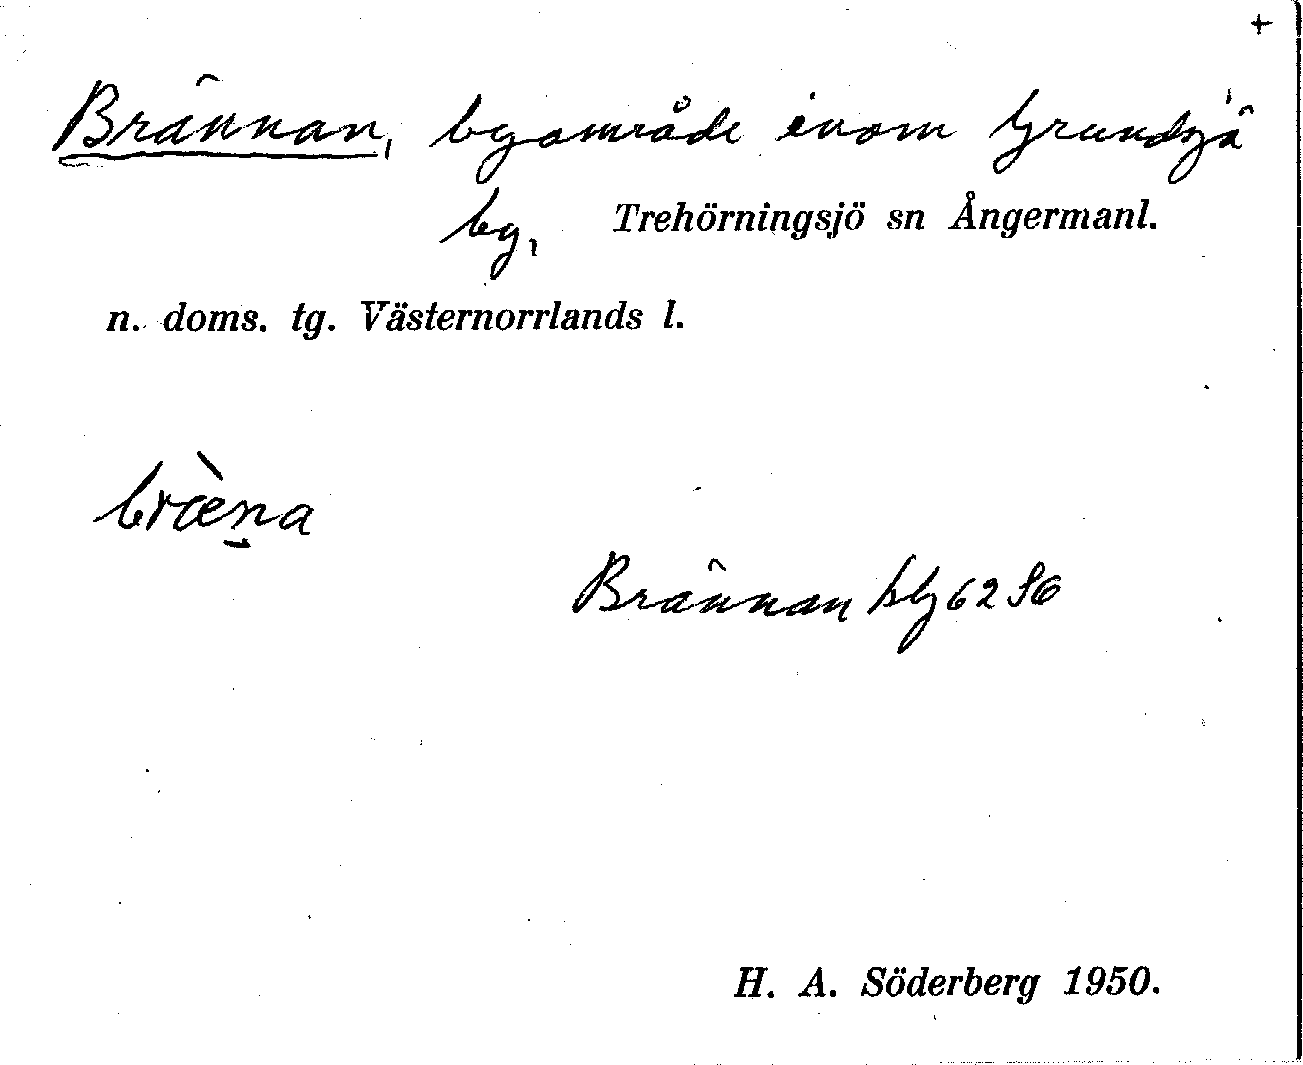 +
Brännan, byområde inom Grundsjö
by, Trehörningsjö sn Ångermanl.
n. doms. tg. Västernorrlands l.
bræ̀n̠a
Brännan
H. A. Söderberg 1950.